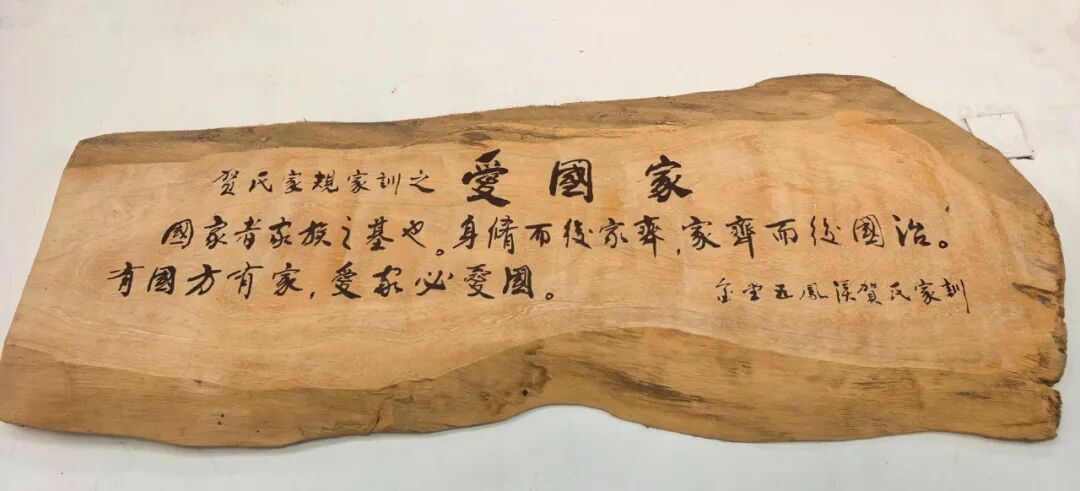 賀氏家規家訓之 愛國家
國家者家族之基也。身脩而後家齊,家齊而後國治。
有國方有家,愛家必愛國。
金堂五鳳溪賀氏家訓